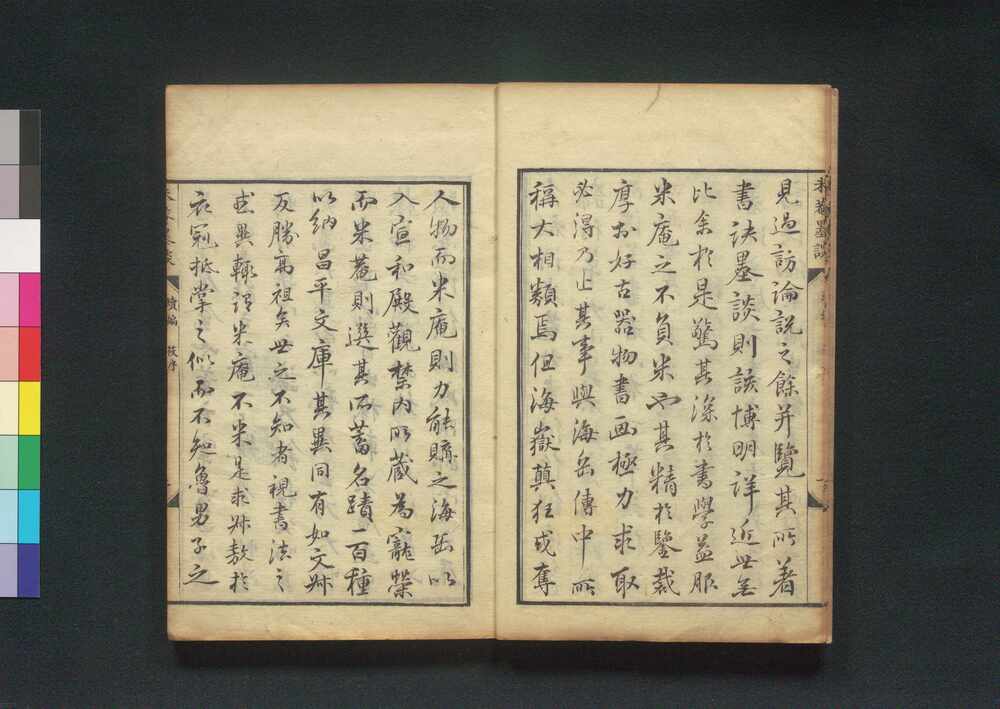 米菴墨談
見過訪論説之餘并覽其所著
書訣墨談則該博明詳近世無
比余於是驚其深於書學益服
米庵之不負米也其精於鑒裁
厚於好古器物書画極力求取
必得乃止其事與海岳傳中所
稱大相類焉但海嶽顛狂或奪
人物而米庵則力能購之海岳以
入宣和殿觀禁内所蔵為寵榮
而米菴則選其所蓄名蹟一百種
以納昌平文庫其異同有如文
反勝高祖矣世之不知者視書法之
或異輙謂米庵不米是求敖於
衣冠抵掌之似而不知魯男子之
續編